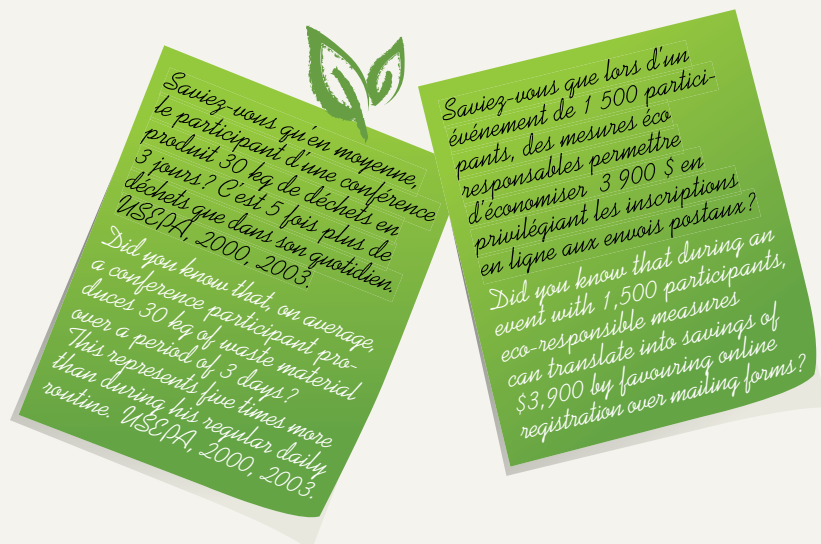 Saviez-vous qu'en moyenne,
le participant d'une conférence
produit 30 kg de déchets en
3 jours? C'est 5 fois plus de
déchets que dans son quotidien.
USEPA, 2000, 2003.
Did you know that, on average,
a conference participant pro-
duces 30 kg of waste material
over a period of 3 days?
This represents five times more
than during his regular daily
routine. USEPA, 2000, 2003.
Saviez-vous que lors d'un
événement de 1 500 partici-
pants, des mesures éco
responsables permettre
d'économiser 3 900 $ en
privilégiant les inscriptions
en ligne aux envois postaux?
Did you know that during an
event with 1,500 participants,
eco-responsible measures
can translate into savings of
$3,900 by favouring online
registration over mailing forms?